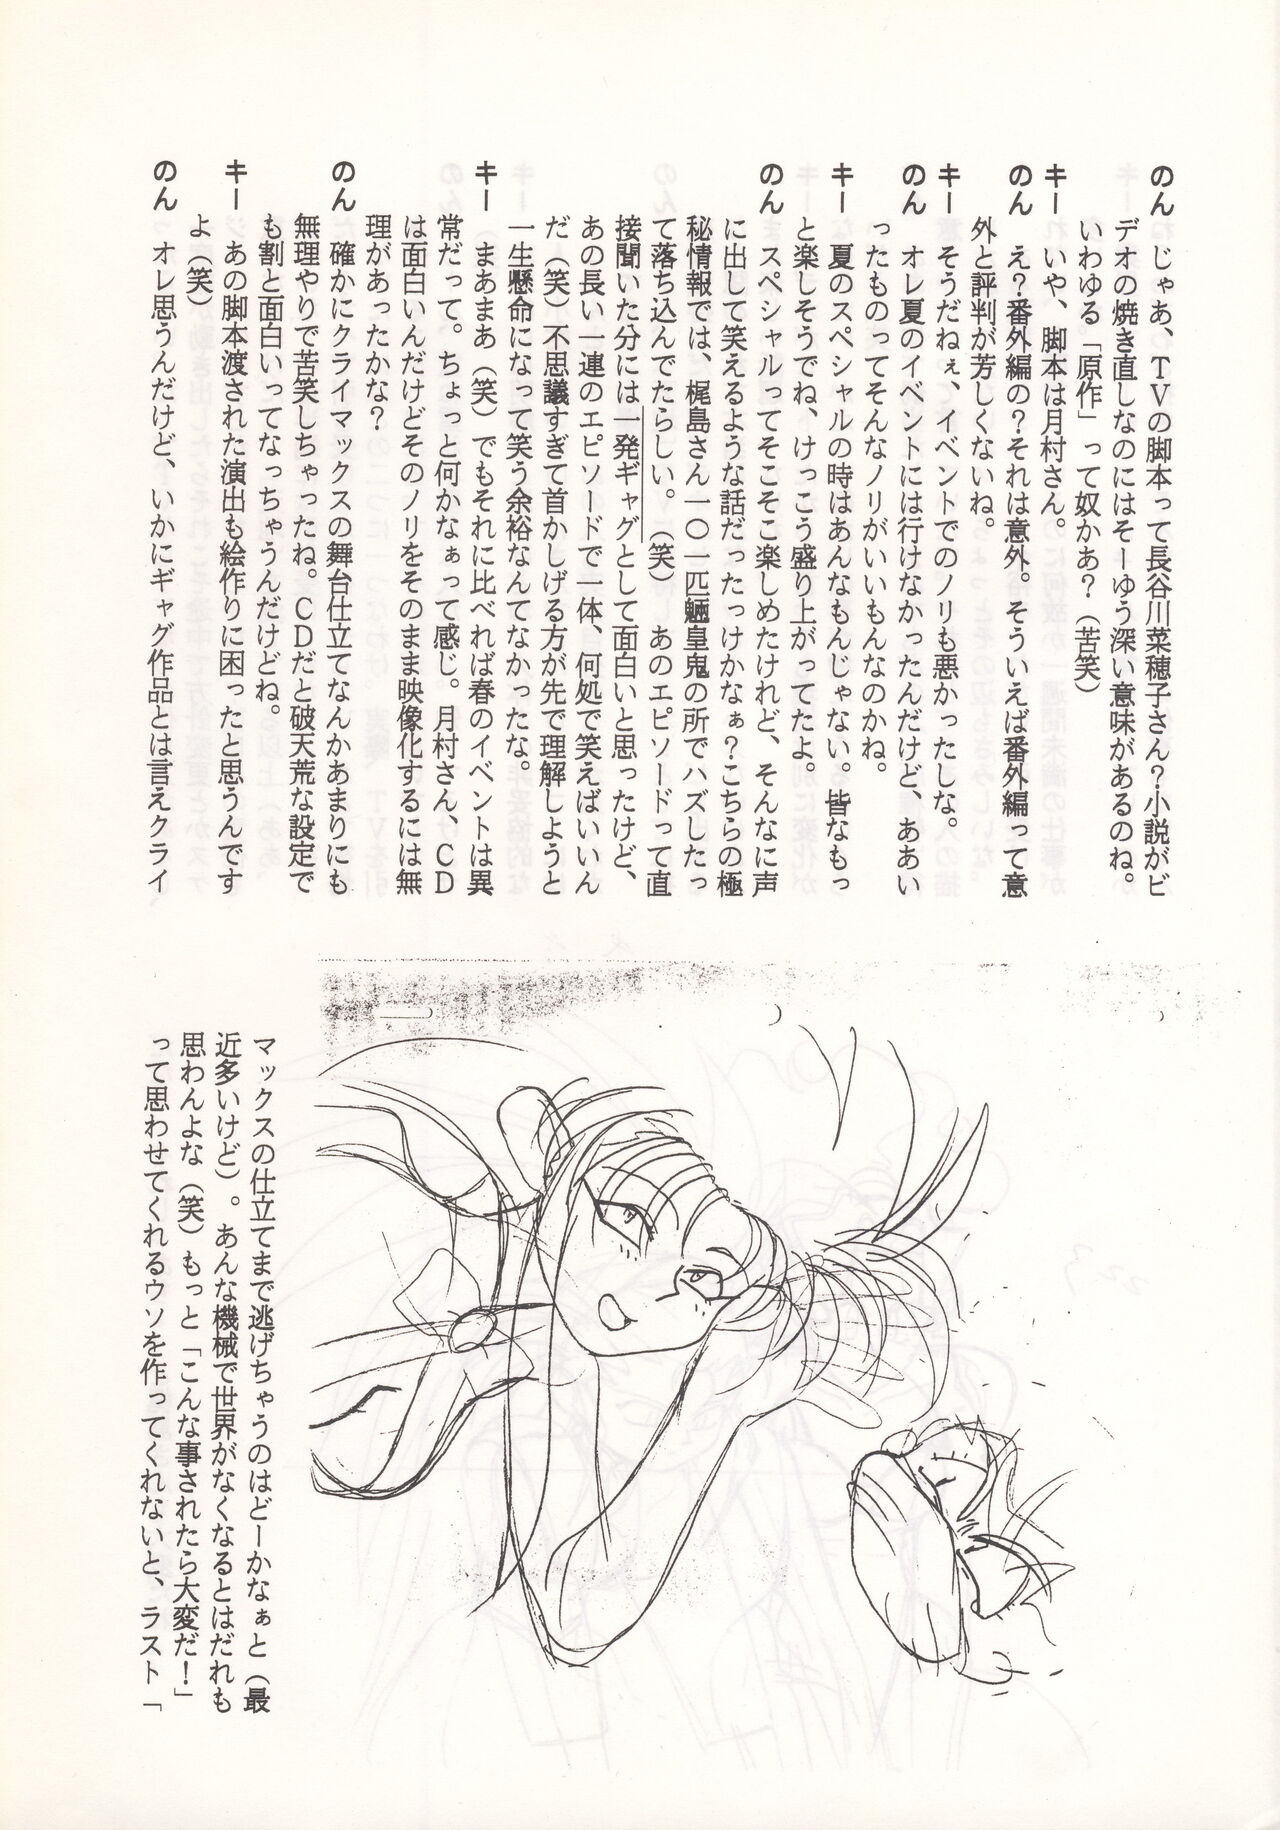 のん　じゃあ、ＴＶの脚本って長谷川菜穂子さん？小説がビ
デオの焼き直しなのにはそーゆう深い意味があるのね。
いわゆる「原作」って奴かあ？（苦笑）
キー　いや、脚本は月村さん。
のん　え？番外編の？それは意外。そういえば番外編って意
外と評判が芳しくないね。
キー　そうだねぇ、イベントでのノリも悪かったしな。
のん　オレ夏のイベントには行けなかったんだけど、ああい
ったものってそんなノリがいいもんなのかね。
キー　夏のスペシャルの時はあんなもんじゃない。皆なもっ
と楽しそうでね、けっこう盛り上がってたよ。
のん　スペシャルってそこそこ楽しめたけれど、そんなに声
に出して笑えるような話だったっけかなぁ？こちらの極
秘情報では、梶島さん一〇一匹魎皇鬼の所でハズしたっ
て落ち込んでたらしい。（笑）　あのエピソードって直
接聞いた分には一発ギャグとして面白いと思ったけど、
あの長い一連のエピソードで一体、何処で笑えばいいん
だ（笑）不思議すぎて首かしげる方が先で理解しようと
一生懸命になって笑う余裕なんてなかったな。
キー　まあまあ（笑）でもそれに比べれば春のイベントは異
常だって。ちょっと何かなぁって感じ。月村さん、ＣＤ
は面白いんだけどそのノリをそのまま映像化するには無
理があったかな？
のん　確かにクライマックスの舞台仕立てなんかあまりにも
無理やりで苦笑しちゃったね。ＣＤだと破天荒な設定で
も割と面白いってなっちゃうんだけどね。
キー　あの脚本渡された演出も絵作りに困ったと思うんです
よ（笑）
のん　オレ思うんだけど、いかにギャグ作品とは言えクライ
マックスの仕立てまで逃げちゃうのはどーかなぁと（最
近多いけど）。あんな機械で世界がなくなるとはだれも
思わんよな（笑）もっと「こんな事されたら大変だ！」
って思わせてくれるウソを作ってくれないと、ラスト「